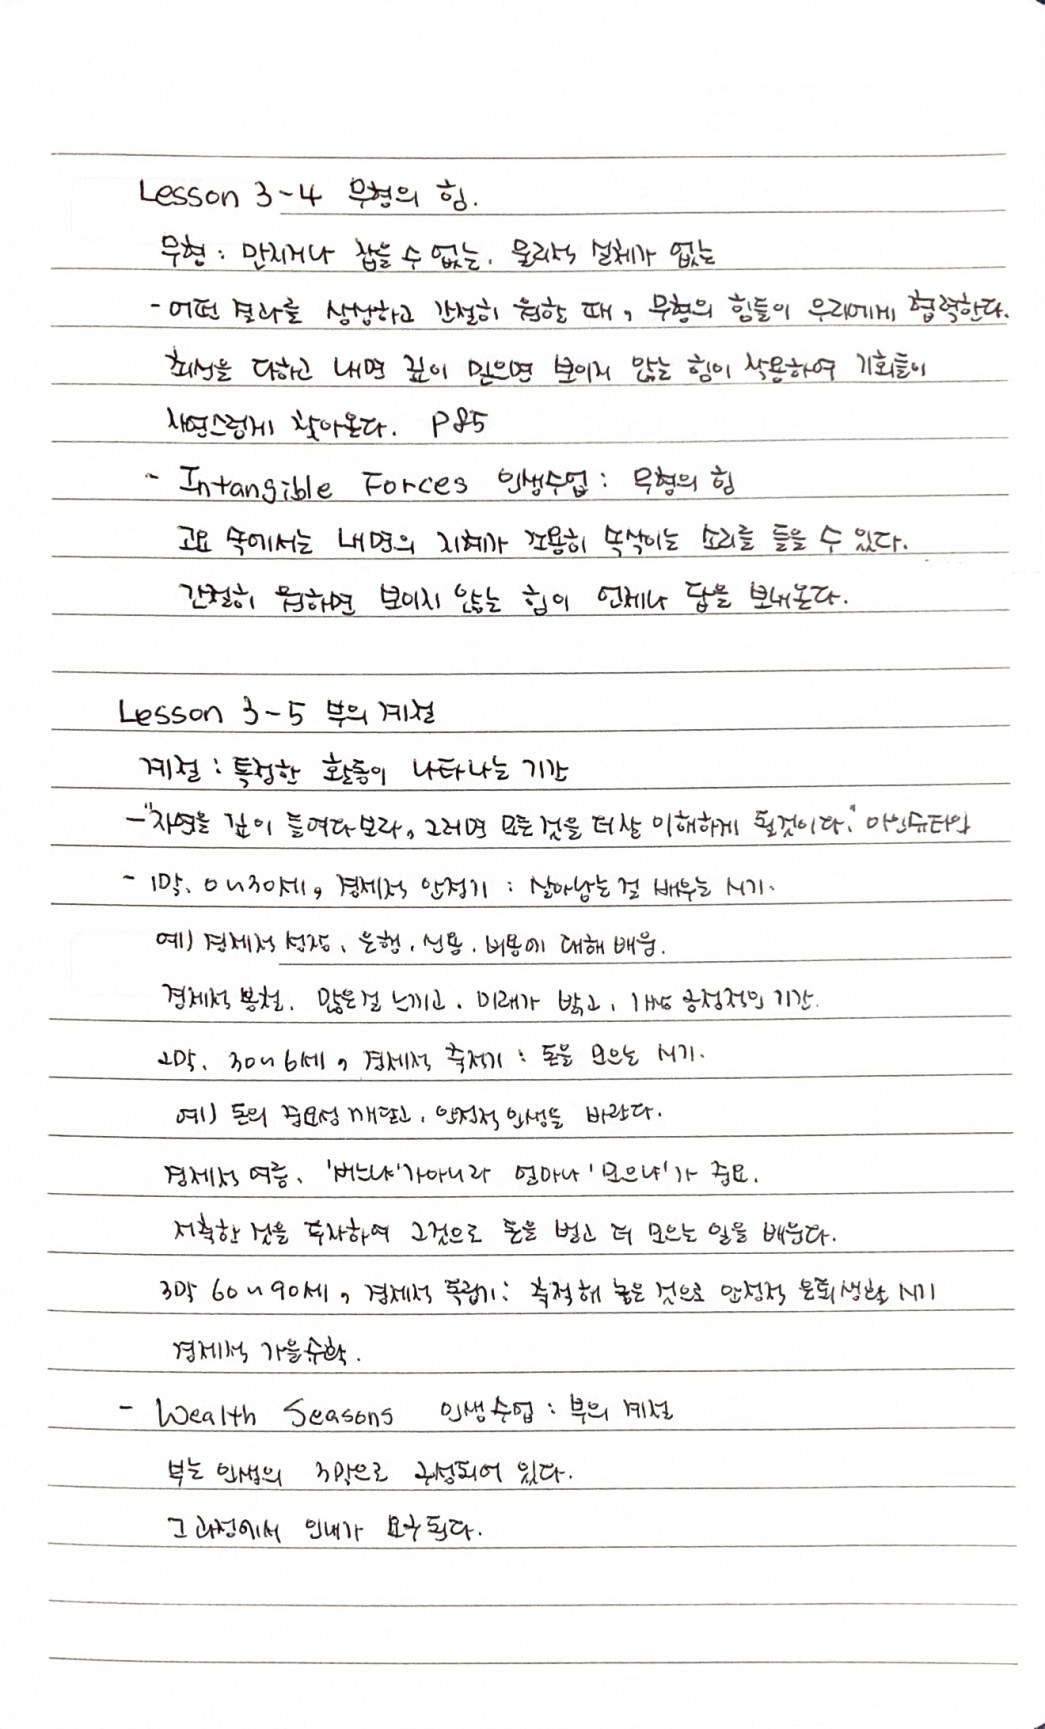 Lesson 3-4 무형의 힘.
무형 : 만지거나 잡을 수 없는, 물리적 실체가 없는
- 어떤 결과를 상상하고 간절히 원할 때, 무형의 힘들이 우리에게 협력한다.
최선을 다하고 내면 깊이 믿으면 보이지 않는 힘이 작용하여 기회들이
자연스럽게 찾아온다. P85
- Intangible Forces 인생수업 : 무형의 힘
고요 속에서는 내면의 지혜가 조용히 속삭이는 소리를 들을 수 있다.
간절히 원하면 보이지 않는 힘이 언제나 답을 보내온다.
Lesson 3-5 부의 계절
계절 : 특정한 활동이 나타나는 기간
- "자연을 깊이 들여다보라, 그러면 모든 것을 더 잘 이해하게 될것이다." 아인슈타인
- 1막. 0~30세, 경제적 안정기 : 살아남는 걸 배우는 시기.
예) 경제적 성장, 은행, 신용, 비용에 대해 배움.
경제적 봄철. 많은걸 느끼고, 미래가 밝고, 긍정적인 기간.
2막. 30~6세, 경제적 축적기 : 돈을 모으는 시기.
예) 돈의 중요성 깨닫고, 안정적 인생을 바란다.
경제적 여름. '버느냐'가아니라 얼마나 '모으냐'가 중요.
저축한 것을 투자하여 그것으로 돈을 벌고 더 모으는 일을 배운다.
3막 60~90세, 경제적 독립기 : 축적해 놓은 것으로 안정적 은퇴생활 시기
경제적 가을수확.
- Wealth Seasons 인생수업 : 부의 계절
부는 인생의 3막으로 구성되어 있다.
그 과정에서 인내가 요구된다.